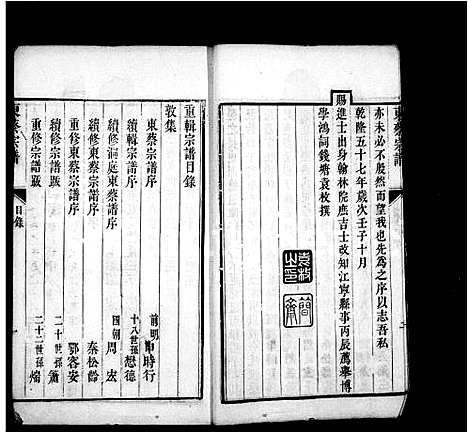 東蔡宗譜
亦未必不殷然而望我也先為之序以志吾私
乾隆五十七年歲次壬子十月
賜進士出身翰林院庶吉士改知江寧縣事丙辰薦舉博
學鴻詞錢塘袁枚撰
袁枚之印
簡齋
重輯宗譜目錄
敦集
東蔡宗譜序 前明 時行
續輯宗譜序 十八世孫懋德
續修洞庭東蔡譜序 國朝 周宏
續修東蔡宗譜序 秦松齡
重修東蔡宗譜序 鄂容安
續修宗譜跋 二十世孫簫
重修宗譜跋 二十二世孫煸
東蔡宗譜
目錄